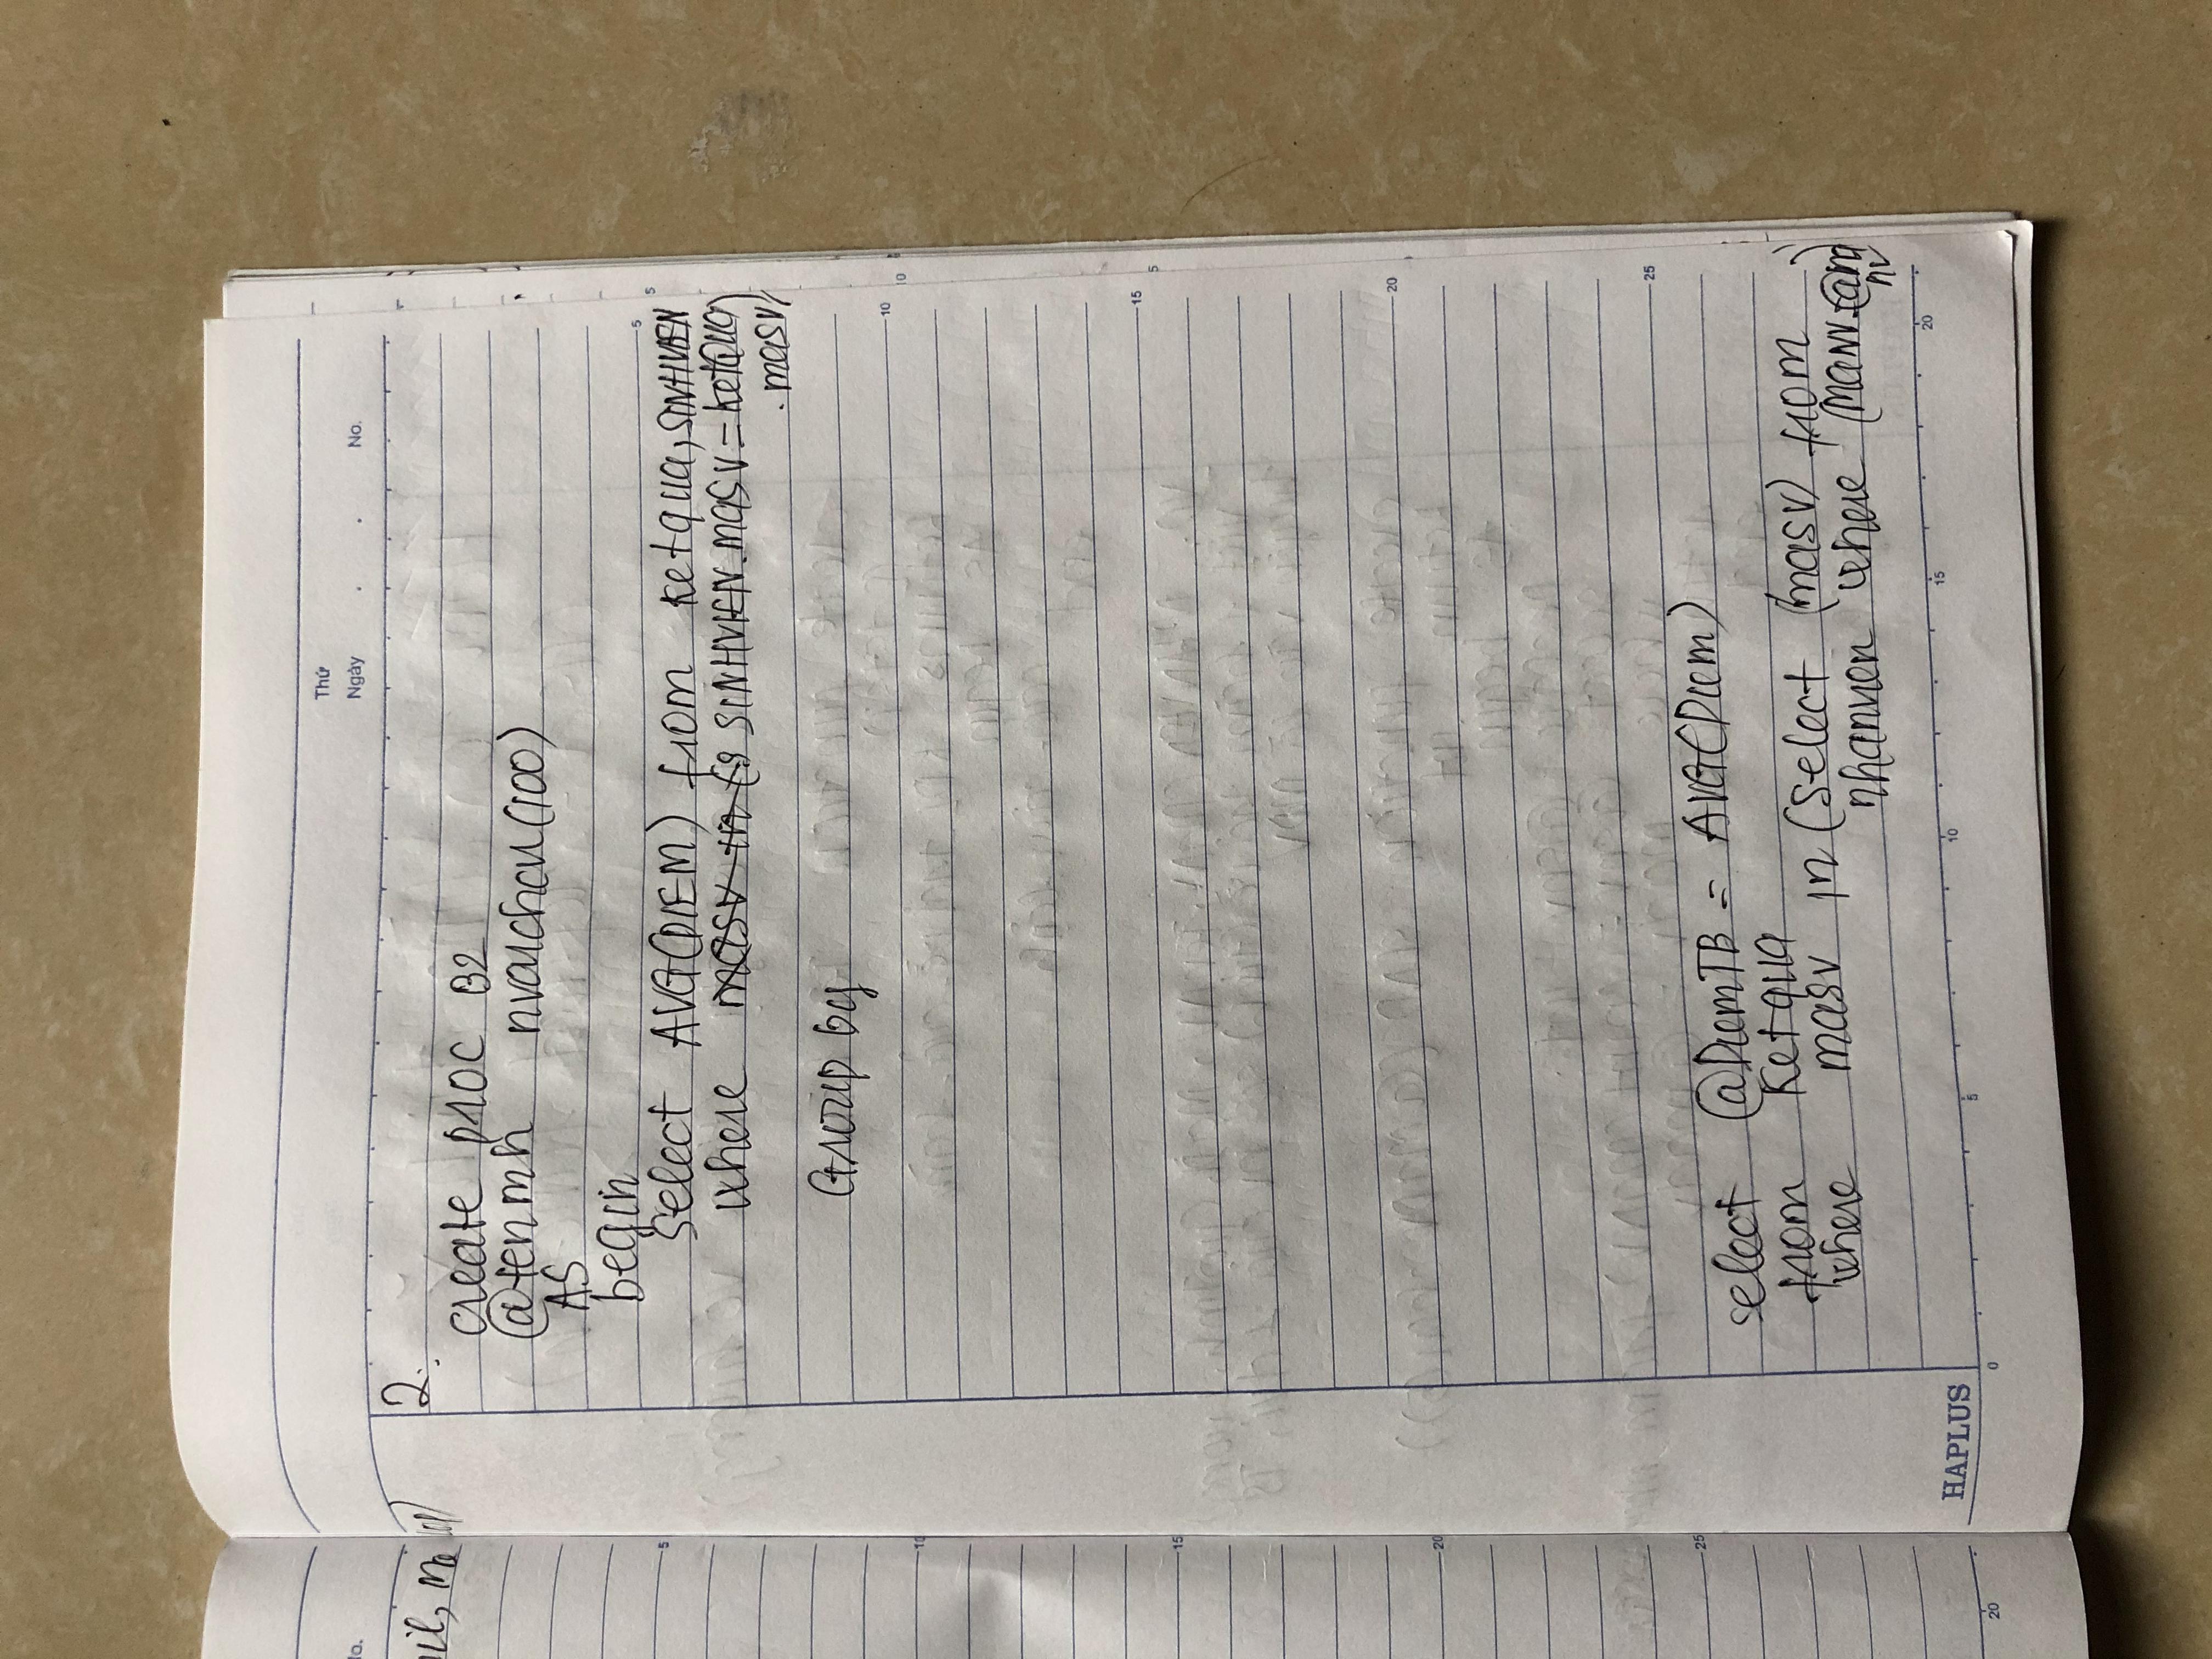 Thứ
Ngày . . No.
2.
create proc B2
@tenmh nvarchar(100)
AS
begin
select AVG(DIEM) from Ketqua, SINHVIEN
where masv in (s SINHVIEN.masv = KetQua
.masv)
Group by
select @DiemTB = AVG(Diem)
from Ketqua
where masv in (select (masv) from
nhanvien where (MANV=@m
nv
HAPLUS
0 5 10 15 20
5
10
15
20
25
No.
il, ma lop)
5
10
15
20
25
20